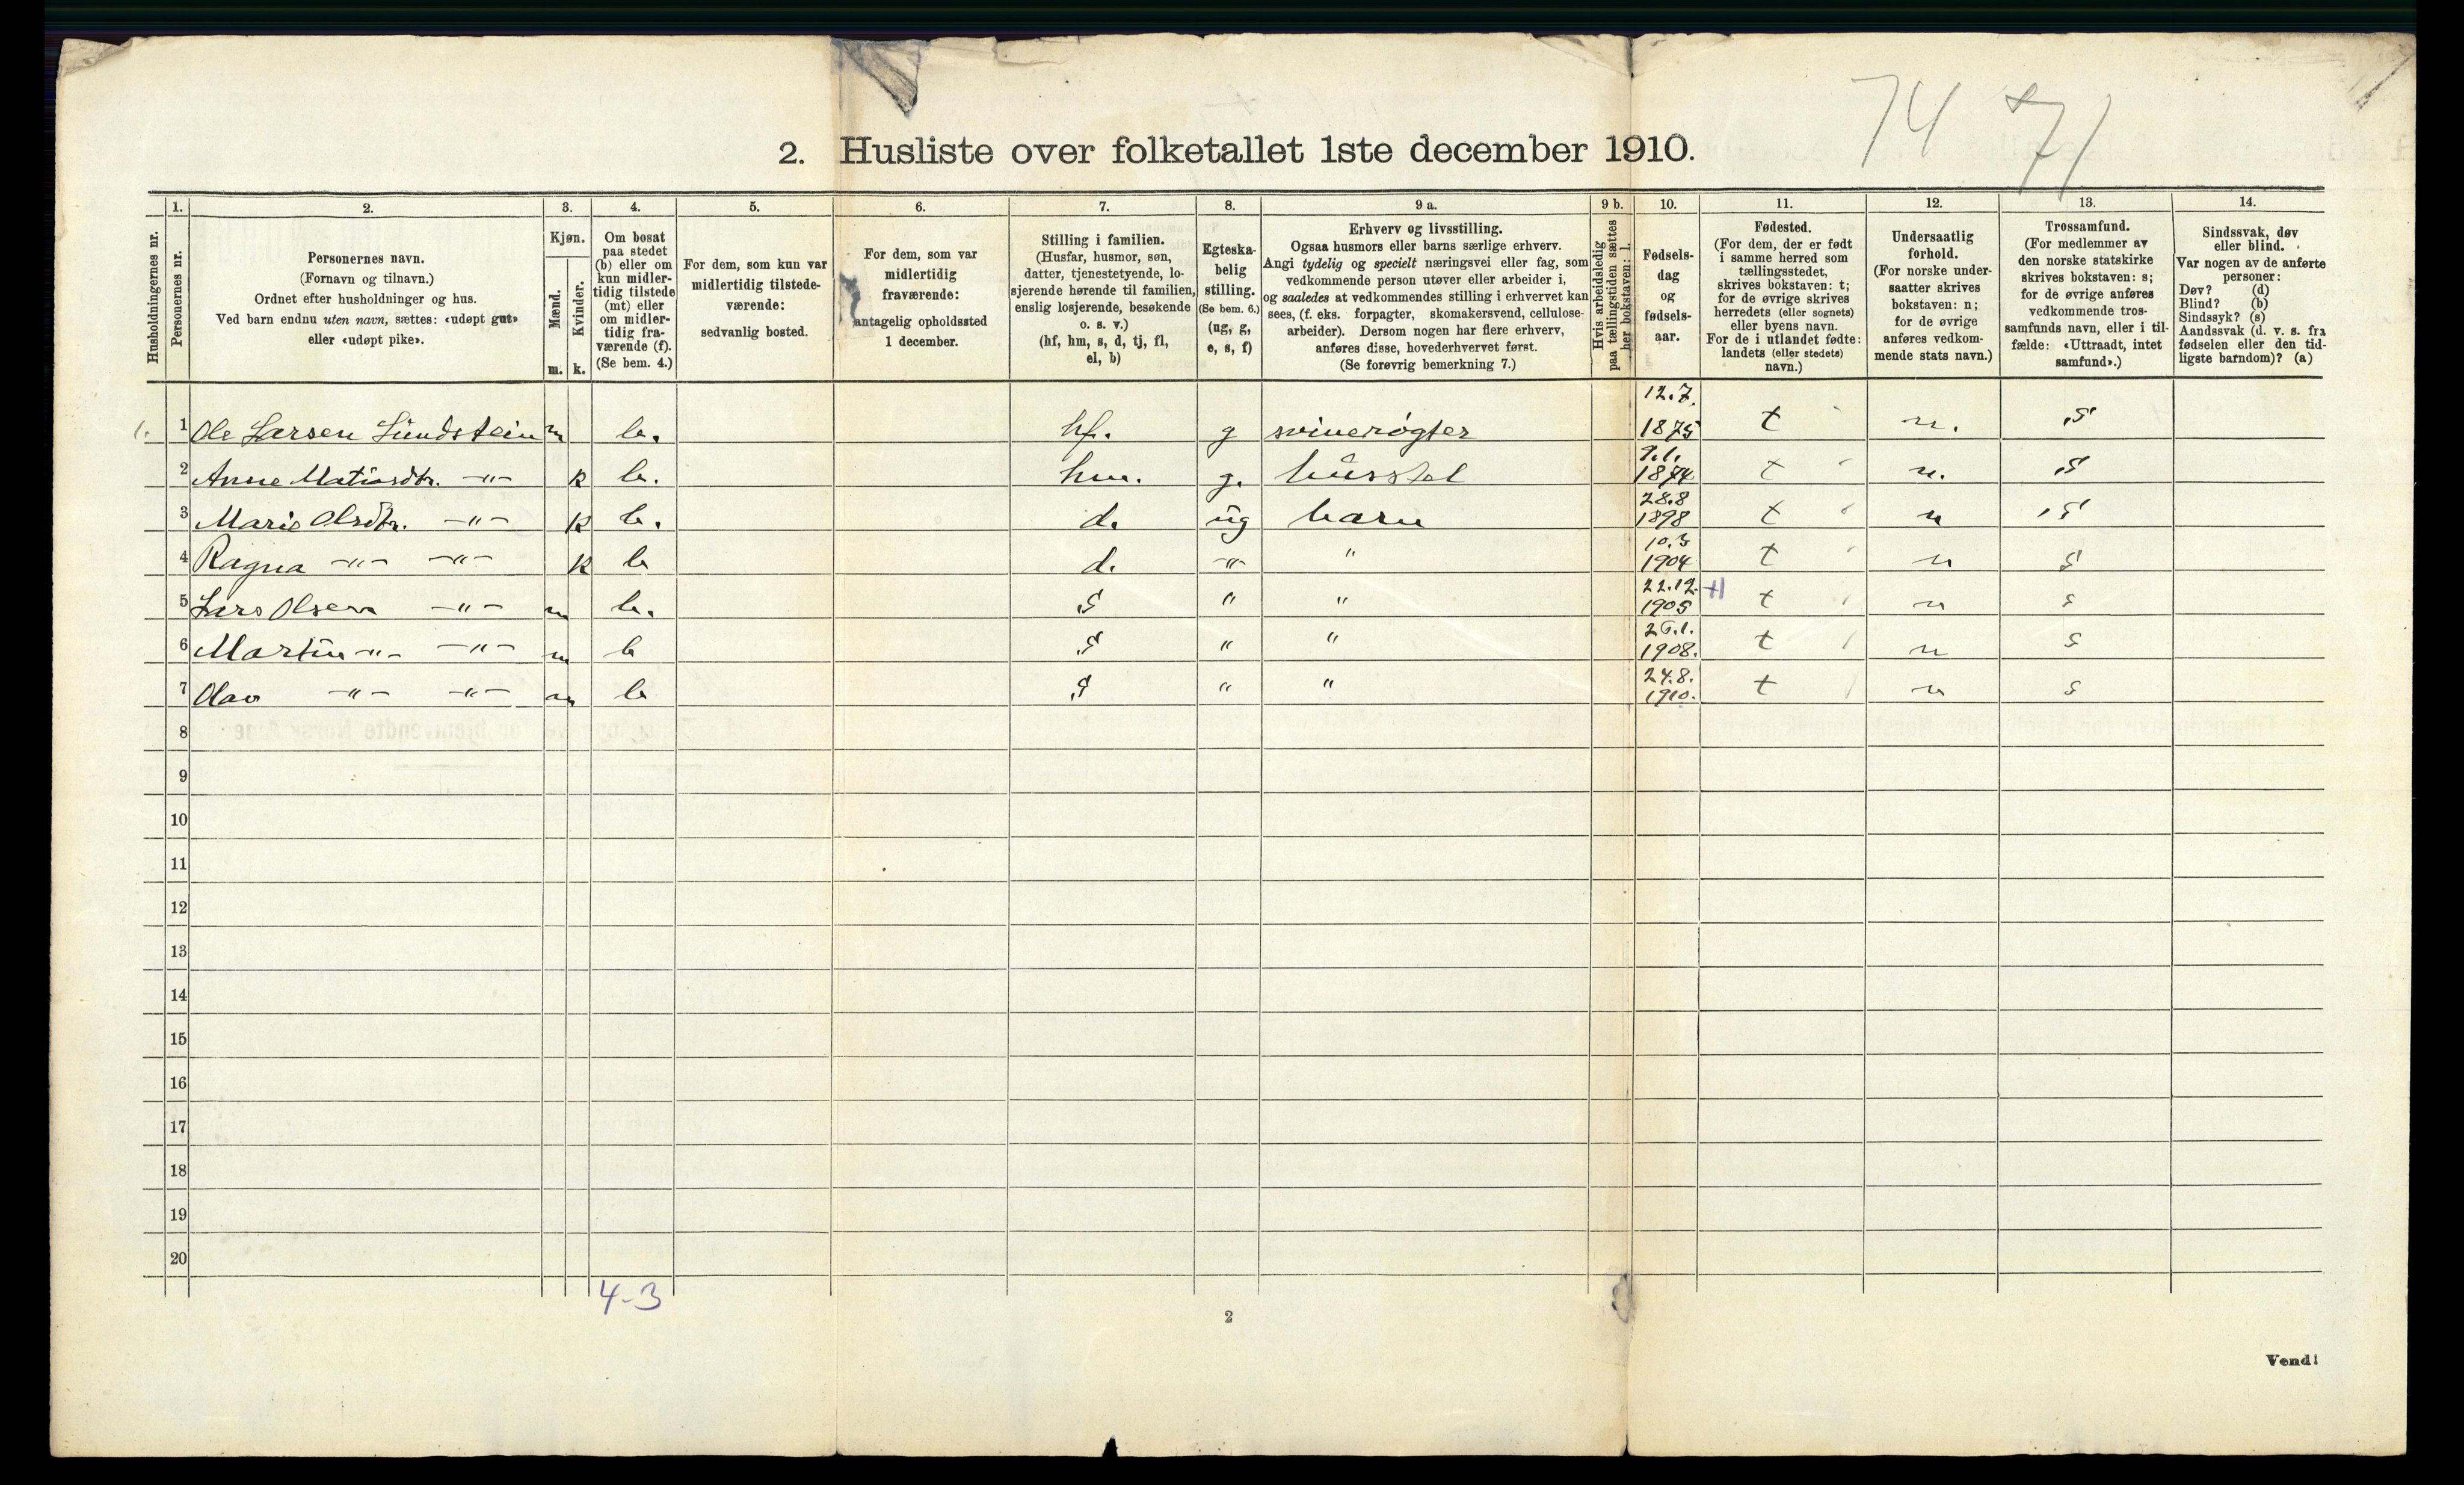 74 71
2. Husliste over folketallet 1ste december 1910.
Husholdningernes nr.
1. Personernes nr.
2. Personernes navn.
(Fornavn og tilnavn.)
Ordnet efter husholdninger og hus.
Ved barn endnu uten navn, sættes: «udøpt gut»
eller «udøpt pike».
3. Kjøn.
Mænd. m.
Kvinder. k.
4. Om bosat
paa stedet
(b) eller om
kun midler-
tidig tilstede
(mt) eller
om midler-
tidig fra-
værende (f).
(Se bem. 4.)
5. For dem, som kun var
midlertidig tilstede-
værende:
sedvanlig bosted.
6. For dem, som var
midlertidig
fraværende:
antagelig opholdssted
1 december.
7. Stilling i familien.
(Husfar, husmor, søn,
datter, tjenestetyende, lo-
sjerende hørende til familien,
enslig losjerende, besøkende
o. s. v.)
(hf, hm, s, d, tj, fl,
el, b)
8. Egteska-
belig
stilling.
(Se bem. 6.)
(ug, g,
e, s, f)
9 a. Erhverv og livsstilling.
Ogsaa husmors eller barns særlige erhverv.
Angi tydelig og specielt næringsvei eller fag, som
vedkommende person utøver eller arbeider i,
og saaledes at vedkommendes stilling i erhvervet kan
sees, (f. eks. forpagter, skomakersvend, cellulose-
arbeider). Dersom nogen har flere erhverv,
anføres disse, hovederhvervet først.
(Se forøvrig bemerkning 7.)
9 b. Hvis arbeidsledig
paa tællingstiden sættes
her bokstaven: l.
10. Fødsels-
dag
og
fødsels-
aar.
11. Fødested.
(For dem, der er født
i samme herred som
tællingsstedet,
skrives bokstaven: t;
for de øvrige skrives
herredets (eller sognets)
eller byens navn.
For de i utlandet fødte:
landets (eller stedets)
navn.)
12. Undersaatlig
forhold.
(For norske under-
saatter skrives
bokstaven: n;
for de øvrige
anføres vedkom-
mende stats navn.)
13. Trossamfund.
(For medlemmer av
den norske statskirke
skrives bokstaven: s;
for de øvrige anføres
vedkommende tros-
samfunds navn, eller i til-
fælde: «Uttraadt, intet
samfund».)
14. Sindssvak, døv
eller blind.
Var nogen av de anførte
personer:
Døv? (d)
Blind? (b)
Sindssyk? (s)
Aandssvak (d. v. s. fra
fødselen eller den tid-
ligste barndom)? (a)
1. 1 Ole Larsen Lundstein m b. hf. g svinerøgter 12.7. 1875 t n. s
2 Anne Matiasdtr. -"- k b. hm. g. husstel 9.1. 1874 t n. s
3 Marie Olsdtr. -"- k b. d. ug barn 28.8 1898 t n s
4 Ragna -"- -"- k b d. -"- " 10.3 1904 t n s
5 Lars Olsen -"- m b. s " " 22.12. 1905 t n s
6 Martin -"- -"- m b s " " 26.1. 1908. t n s
7 Olav -"- -"- m b s " " 24.8. 1910. t n s
8
9
10
11
12
13
14
15
16
17
18
19
20
4-3
2
Vend!